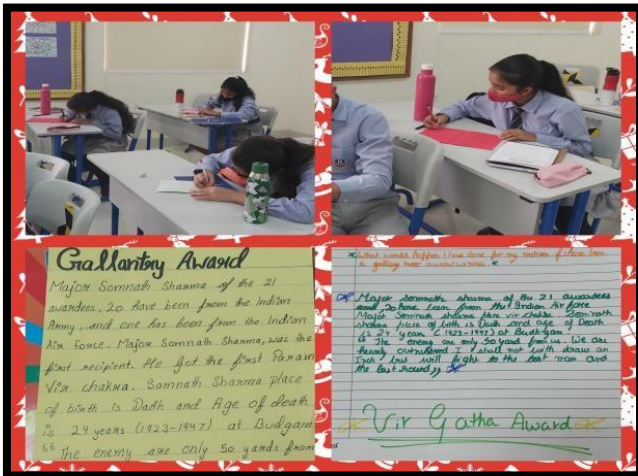 Gallantry Award
Major Somnath Sharma of the 21
awardees, 20 have been from the Indian
Army, and one has been from the Indian
Air force. Major Somnath Sharma, was the
first recipient. He got the first Param
Vir chakra. Somnath Sharma place
of birth is Dadh and Age of death
is 24 years (1923-1947) at Budgam
"The enemy are only 50 yards from
What would have done for my nation if
Major Somnath sharma of the 21 awardees
and 20 have been from the Indian Air force
Major Somnath sharma Vir chakra Somnath
sharma place of birth is Dadh and age of Death
is 24 years (1923-1947) at Budgam
"The enemy are only 50 yard from us. We are
heavily outnumbered I shall not with draw an
Inch but will fight to the last man and
the last round"
Vir Gatha Award